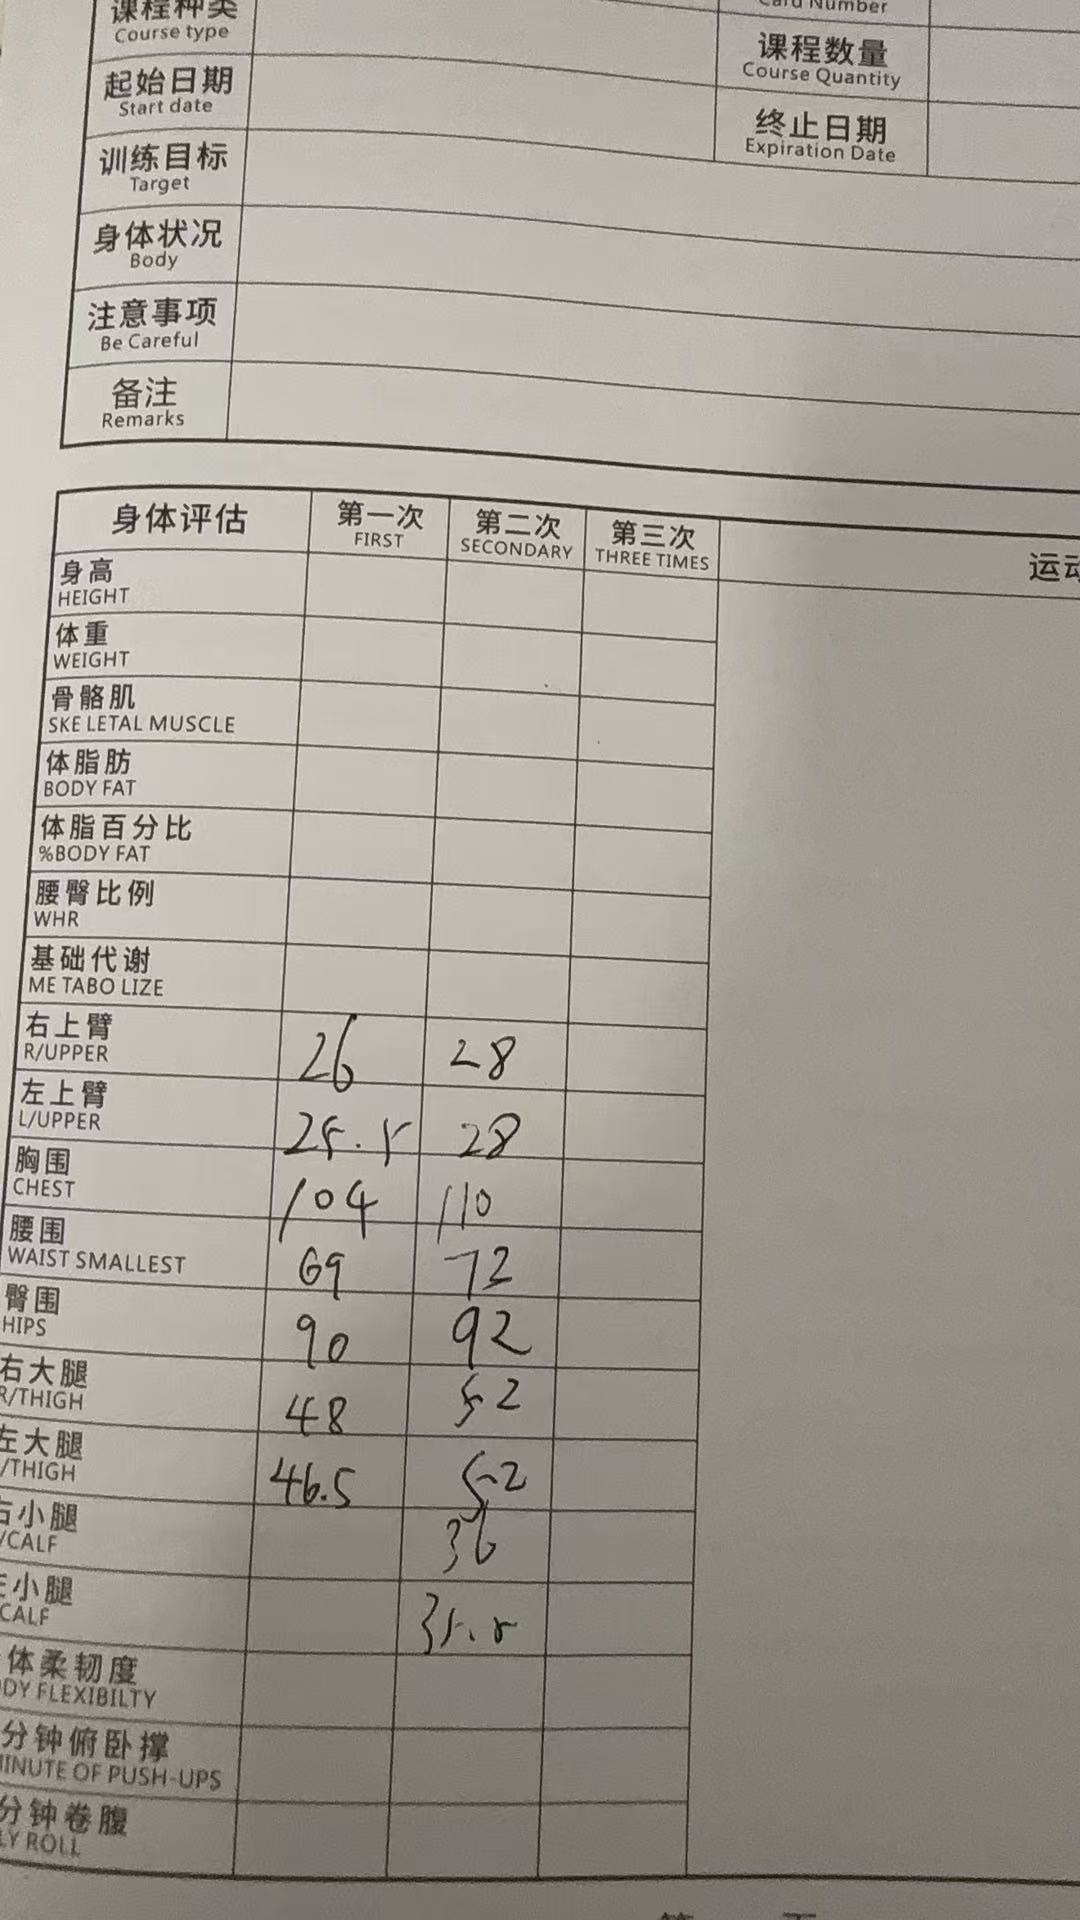 课程种类
Course type
Card Number
课程数量
Course Quantity
起始日期
Start date
终止日期
Expiration Date
训练目标
Target
身体状况
Body
注意事项
Be Careful
备注
Remarks
身体评估 第一次 第二次 第三次
FIRST SECONDARY THREE TIMES
运动
身高
HEIGHT
体重
WEIGHT
骨骼肌
SKE LETAL MUSCLE
体脂肪
BODY FAT
体脂百分比
%BODY FAT
腰臀比例
WHR
基础代谢
ME TABO LIZE
右上臂
R/UPPER 26 28
左上臂
L/UPPER 25.5 28
胸围
CHEST 104 110
腰围
WAIST SMALLEST 69 72
臀围
HIPS 90 92
右大腿
R/THIGH 48 52
左大腿
/THIGH 46.5 52
右小腿
/CALF 36
左小腿
CALF 35.5
体柔韧度
DY FLEXIBILTY
分钟俯卧撑
MINUTE OF PUSH-UPS
分钟卷腹
LY ROLL